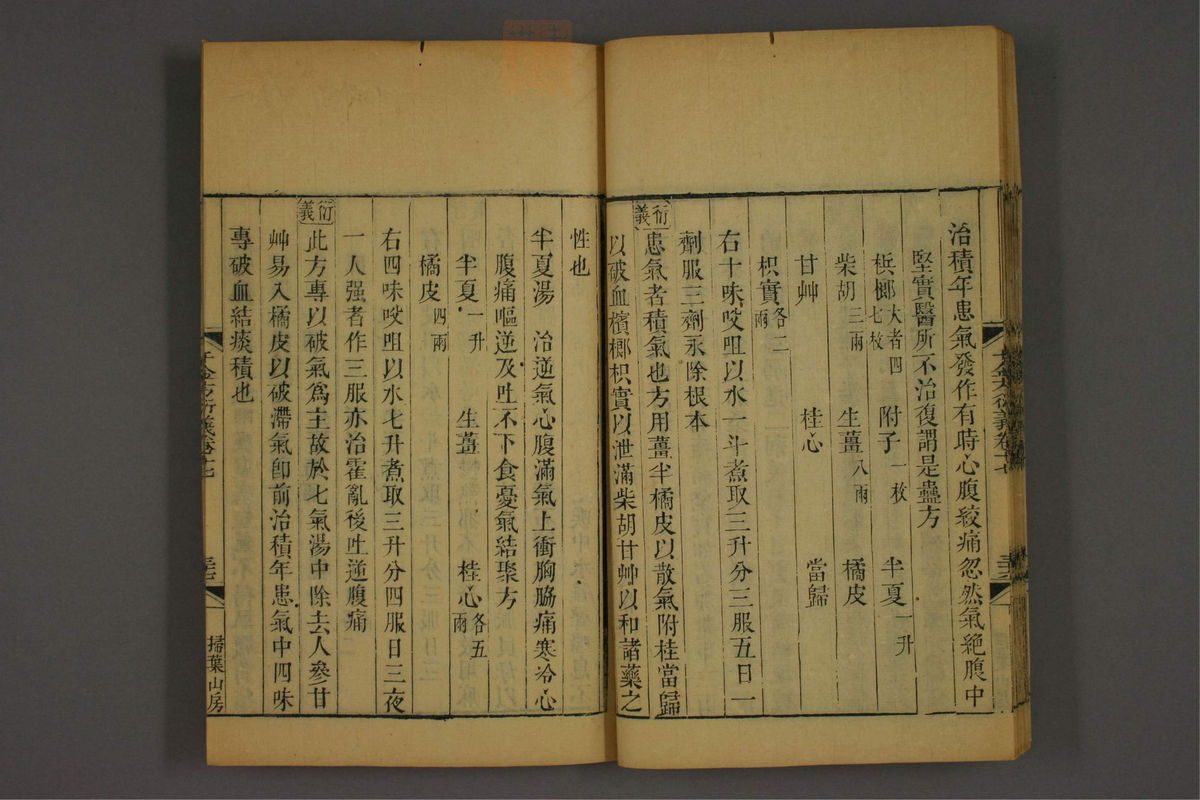 治積年患氣發作有時心腹絞痛忽然氣絶腹中
堅實醫所不治復謂是蠱方
梹榔大者四七枚 附子一枚 半夏一升
柴胡三兩 生薑八兩 橘皮
甘艸 桂心 當歸
枳實各二兩
右十味㕮咀以水一斗煮取三升分三服五日一
劑服三劑永除根本
衍義
患氣者積氣也方用薑半橘皮以散氣附桂當歸
以破血檳榔枳實以泄滿柴胡甘艸以和諸藥之
性也
半夏湯 治逆氣心腹滿氣上衝胸脇痛寒冷心
腹痛嘔逆及吐不下食憂氣結聚方
半夏一升 生薑 桂心各五兩
橘皮四兩
右四味㕮咀以水七升煮取三升分四服日三夜
一人强者作三服亦治霍亂後吐逆腹痛
衍義
此方專以破氣爲主故於七氣湯中除去人參甘
艸易入橘皮以破滯氣卽前治積年患氣中四味
專破血結痰積也
千金方衍義卷十七
掃葉山房